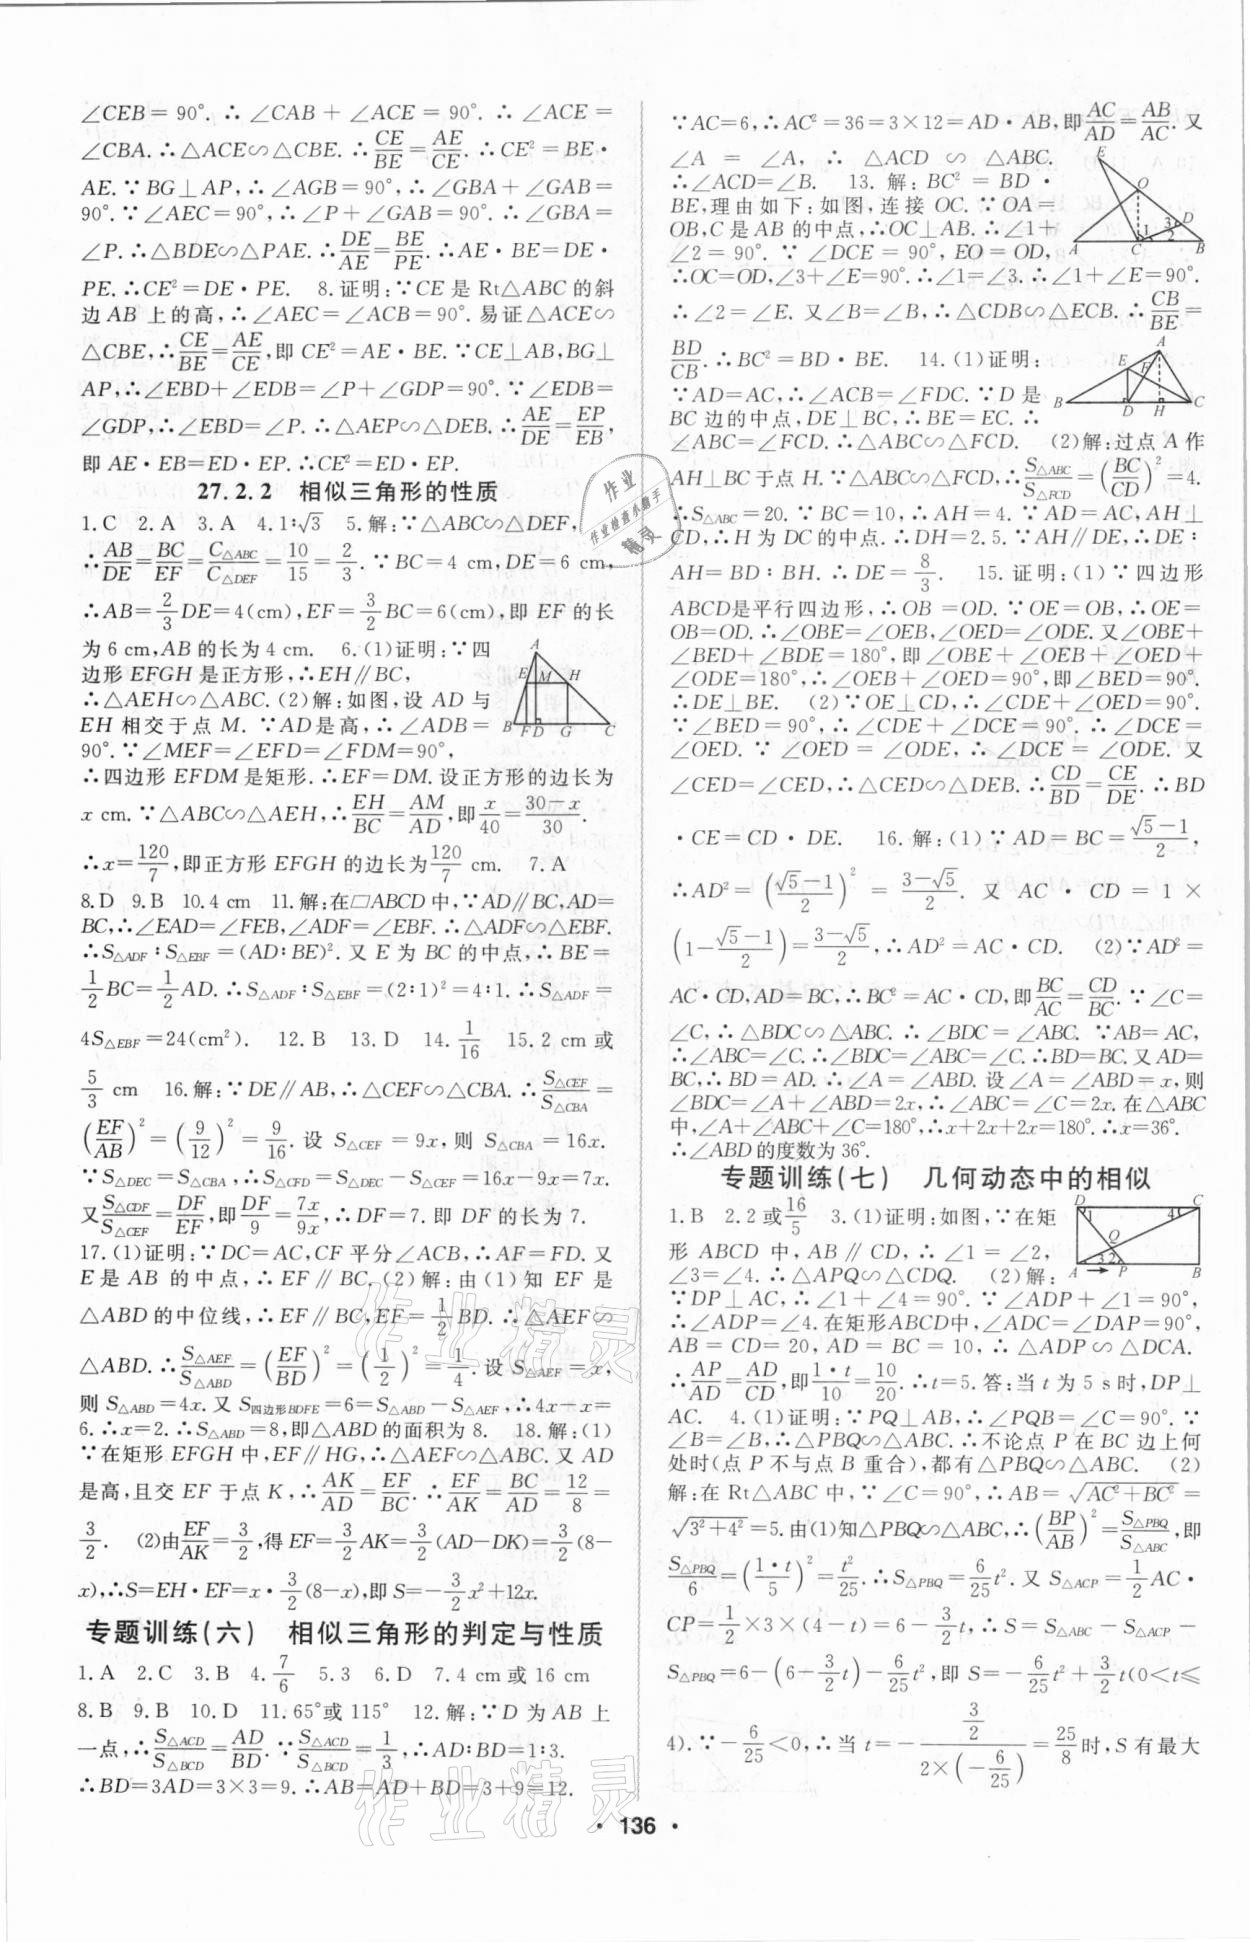 ∠CEB=90°.∴∠CAB+∠ACE=90°.∴∠ACE=
∠CBA.∴△ACE∽△CBE.∴CE/BE=AE/CE.∴CE²=BE·
AE.∵BG⊥AP,∴∠AGB=90°,∴∠GBA+∠GAB=
90°.∵∠AEC=90°,∴∠P+∠GAB=90°.∴∠GBA=
∠P.∴△BDE∽△PAE.∴DE/AE=BE/PE.∴AE·BE=DE·
PE.∴CE²=DE·PE. 8.证明:∵CE是Rt△ABC的斜
边AB上的高,∴∠AEC=∠ACB=90°.易证△ACE∽
△CBE,∴CE/BE=AE/CE,即CE²=AE·BE.∵CE⊥AB,BG⊥
AP,∴∠EBD+∠EDB=∠P+∠GDP=90°.∵∠EDB=
∠GDP,∴∠EBD=∠P.∴△AEP∽△DEB.∴AE/DE=EP/EB,
即AE·EB=ED·EP.∴CE²=ED·EP.
27.2.2 相似三角形的性质
1.C 2.A 3.A 4.1∶√3 5.解:∵△ABC∽△DEF,
∴AB/DE=BC/EF=C△ABC/C△DEF=10/15=2/3.∵BC=4 cm,DE=6 cm,
∴AB=2/3DE=4(cm),EF=3/2BC=6(cm),即EF的长
为6 cm,AB的长为4 cm. 6.(1)证明:∵四
边形EFGH是正方形,∴EH∥BC,
∴△AEH∽△ABC.(2)解:如图,设AD与
EH相交于点M.∵AD是高,∴∠ADB=
90°.∵∠MEF=∠EFD=∠FDM=90°,
∴四边形EFDM是矩形.∴EF=DM.设正方形的边长为
x cm.∵△ABC∽△AEH,∴EH/BC=AM/AD,即x/40=(30-x)/30.
∴x=120/7,即正方形EFGH的边长为120/7 cm. 7.A
8.D 9.B 10.4 cm 11.解:在▱ABCD中,∵AD∥BC,AD=
BC,∴∠EAD=∠FEB,∠ADF=∠EBF.∴△ADF∽△EBF.
∴S△ADF∶S△EBF=(AD∶BE)².又E为BC的中点,∴BE=
1/2BC=1/2AD.∴S△ADF∶S△EBF=(2∶1)²=4∶1.∴S△ADF=
4S△EBF=24(cm²). 12.B 13.D 14.1/16 15.2 cm或
5/3 cm 16.解:∵DE∥AB,∴△CEF∽△CBA.∴S△CEF/S△CBA=
(EF/AB)²=(9/12)²=9/16.设S△CEF=9x,则S△CBA=16x.
∵S△DEC=S△CBA,∴S△CFD=S△DEC-S△CEF=16x-9x=7x.
又S△CDF/S△CEF=DF/EF,即DF/9=7x/9x,∴DF=7.即DF的长为7.
17.(1)证明:∵DC=AC,CF平分∠ACB,∴AF=FD.又
E是AB的中点,∴EF∥BC.(2)解:由(1)知EF是
△ABD的中位线,∴EF∥BC,EF=1/2BD.∴△AEF∽
△ABD.∴S△AEF/S△ABD=(EF/BD)²=(1/2)²=1/4.设S△AEF=x,
则S△ABD=4x.又S四边形BDFE=6=S△ABD-S△AEF,∴4x-x=
6.∴x=2.∴S△ABD=8,即△ABD的面积为8. 18.解:(1)
∵在矩形EFGH中,EF∥HG,∴△AEF∽△ABC.又AD
是高,且交EF于点K,∴AK/AD=EF/BC.∴EF/AK=BC/AD=12/8=
3/2. (2)由EF/AK=3/2,得EF=3/2AK=3/2(AD-DK)=3/2(8-
x),∴S=EH·EF=x·3/2(8-x),即S=-3/2x²+12x.
专题训练(六) 相似三角形的判定与性质
1.A 2.C 3.B 4.7/6 5.3 6.D 7.4 cm或16 cm
8.B 9.B 10.D 11.65°或115° 12.解:∵D为AB上
一点,∴S△ACD/S△BCD=AD/BD.∵S△ACD/S△BCD=1/3,∴AD∶BD=1∶3.
∴BD=3AD=3×3=9.∴AB=AD+BD=3+9=12.
∵AC=6,∴AC²=36=3×12=AD·AB,即AC/AD=AB/AC.又
∠A=∠A,∴△ACD∽△ABC.
∴∠ACD=∠B. 13.解:BC²=BD·
BE,理由如下:如图,连接OC.∵OA=
OB,C是AB的中点,∴OC⊥AB.∴∠1+
∠2=90°.∵∠DCE=90°,EO=OD,
∴OC=OD,∠3+∠E=90°.∴∠1=∠3.∴∠1+∠E=90°.
∴∠2=∠E.又∠B=∠B,∴△CDB∽△ECB.∴CB/BE=
BD/CB.∴BC²=BD·BE. 14.(1)证明:
∵AD=AC,∴∠ACB=∠FDC.∵D是
BC边的中点,DE⊥BC,∴BE=EC.∴
∠ABC=∠FCD.∴△ABC∽△FCD. (2)解:过点A作
AH⊥BC于点H.∵△ABC∽△FCD,∴S△ABC/S△FCD=(BC/CD)²=4.
∴S△ABC=20.∵BC=10,∴AH=4.∵AD=AC,AH⊥
CD,∴H为DC的中点.∴DH=2.5.∵AH∥DE,∴DE∶
AH=BD∶BH.∴DE=8/3. 15.证明:(1)∵四边形
ABCD是平行四边形,∴OB=OD.∵OE=OB,∴OE=
OB=OD.∴∠OBE=∠OEB,∠OED=∠ODE.又∠OBE+
∠BED+∠BDE=180°,即∠OBE+∠OEB+∠OED+
∠ODE=180°,∴∠OEB+∠OED=90°,即∠BED=90°.
∴DE⊥BE. (2)∵OE⊥CD,∴∠CDE+∠OED=90°.
∵∠BED=90°,∴∠CDE+∠DCE=90°.∴∠DCE=
∠OED.∵∠OED=∠ODE,∴∠DCE=∠ODE.又
∠CED=∠CED,∴△CED∽△DEB.∴CD/BD=CE/DE.∴BD
·CE=CD·DE. 16.解:(1)∵AD=BC=(√5-1)/2,
∴AD²=((√5-1)/2)²=(3-√5)/2.又AC·CD=1×
(1-(√5-1)/2)=(3-√5)/2,∴AD²=AC·CD. (2)∵AD²=
AC·CD,AD=BC,∴BC²=AC·CD,即BC/AC=CD/BC.∵∠C=
∠C,∴△BDC∽△ABC.∴∠BDC=∠ABC.∵AB=AC,
∴∠ABC=∠C.∴∠BDC=∠ABC=∠C.∴BD=BC.又AD=
BC,∴BD=AD.∴∠A=∠ABD.设∠A=∠ABD=x,则
∠BDC=∠A+∠ABD=2x,∴∠ABC=∠C=2x.在△ABC
中,∠A+∠ABC+∠C=180°,∴x+2x+2x=180°.∴x=36°.
∴∠ABD的度数为36°.
专题训练(七) 几何动态中的相似
1.B 2.2或16/5 3.(1)证明:如图,∵在矩
形ABCD中,AB∥CD,∴∠1=∠2,
∠3=∠4.∴△APQ∽△CDQ. (2)解:
∵DP⊥AC,∴∠1+∠4=90°.∵∠ADP+∠1=90°,
∴∠ADP=∠4.在矩形ABCD中,∠ADC=∠DAP=90°,
AB=CD=20,AD=BC=10,∴△ADP∽△DCA.
∴AP/AD=AD/CD,即1·t/10=10/20.∴t=5.答:当t为5 s时,DP⊥
AC. 4.(1)证明:∵PQ⊥AB,∴∠PQB=∠C=90°.∵
∠B=∠B,∴△PBQ∽△ABC.∴不论点P在BC边上何
处时(点P不与点B重合),都有△PBQ∽△ABC. (2)
解:在Rt△ABC中,∵∠C=90°,∴AB=√(AC²+BC²)=
√(3²+4²)=5.由(1)知△PBQ∽△ABC,∴(BP/AB)²=S△PBQ/S△ABC,即
S△PBQ/6=(1·t/5)²=t²/25.∴S△PBQ=6/25t².又S△ACP=1/2AC·
CP=1/2×3×(4-t)=6-3/2t,∴S=S△ABC-S△ACP-
S△PBQ=6-(6-3/2t)-6/25t²,即S=-6/25t²+3/2t(0<t≤
4).∵-6/25<0,∴当t=-(3/2)/(2×(-6/25))=25/8时,S有最大
·136·